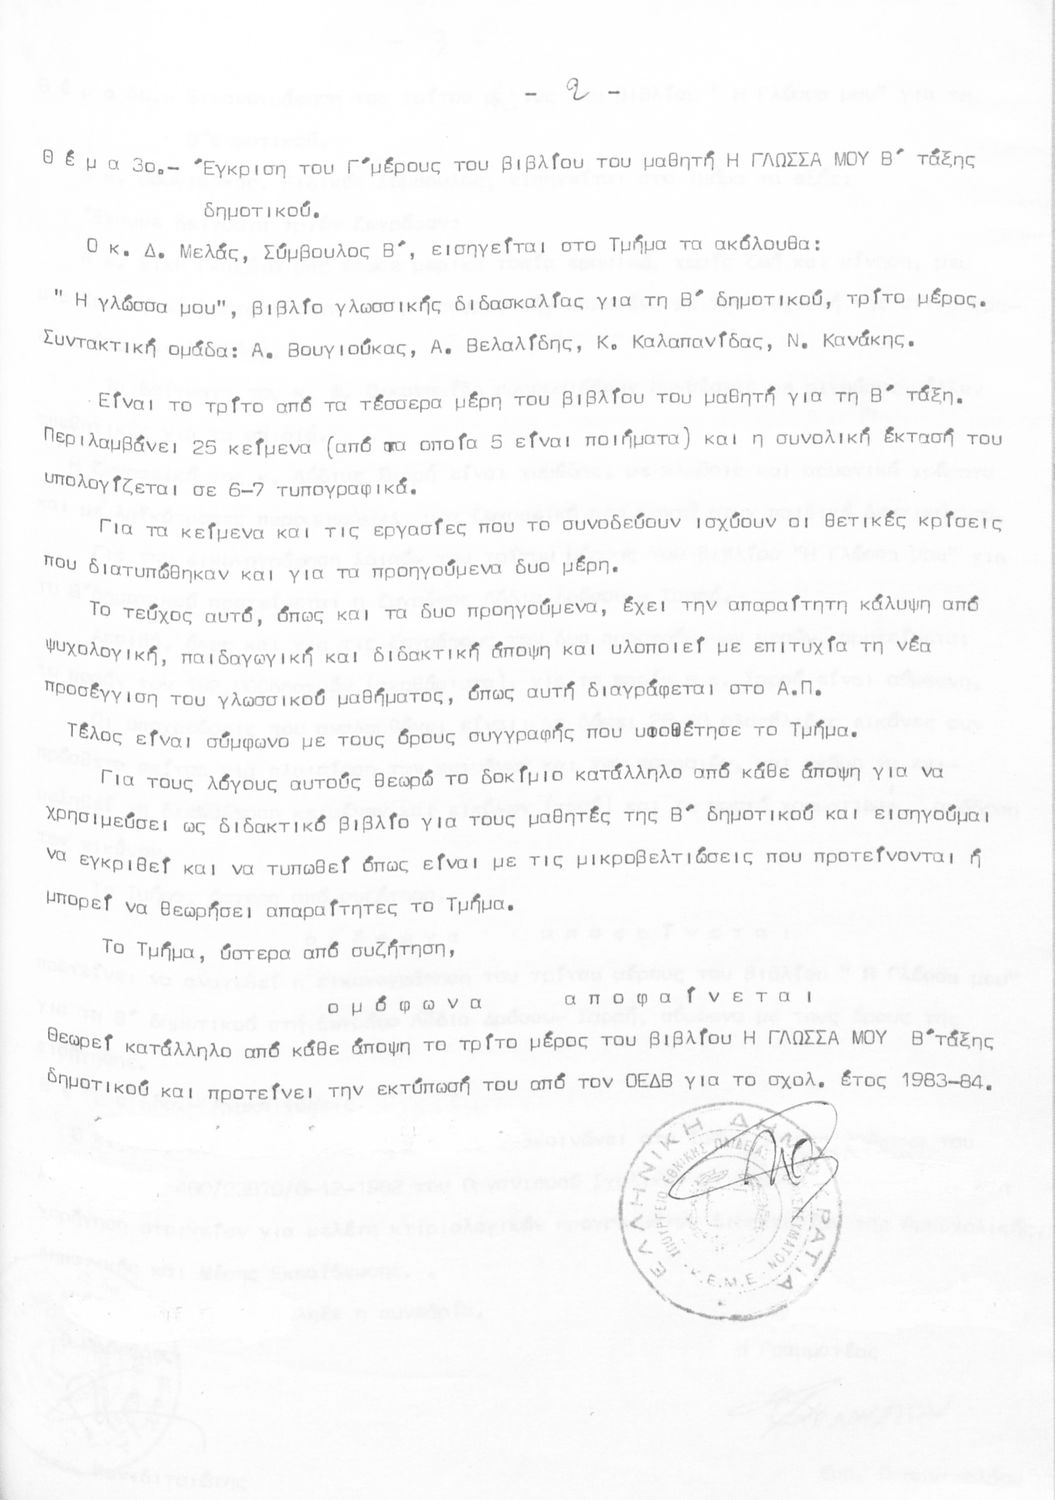 - 2 -
Θ έ μ α 3ο.- Έγκριση του Γ΄μέρους του βιβλίου του μαθητή Η ΓΛΩΣΣΑ ΜΟΥ Β΄ τάξης
δημοτικού.
Ο κ. Δ. Μελάς, Σύμβουλος Β΄, εισηγείται στο Τμήμα τα ακόλουθα:
" Η γλώσσα μου", βιβλίο γλωσσικής διδασκαλίας για τη Β΄ δημοτικού, τρίτο μέρος.
Συντακτική ομάδα: Α. Βουγιούκας, Α. Βελαλίδης, Κ. Καλαπανίδας, Ν. Κανάκης.
Είναι το τρίτο από τα τέσσερα μέρη του βιβλίου του μαθητή για τη Β΄ τάξη.
Περιλαμβάνει 25 κείμενα (από τα οποία 5 είναι ποιήματα) και η συνολική έκτασή του
υπολογίζεται σε 6-7 τυπογραφικά.
Για τα κείμενα και τις εργασίες που το συνοδεύουν ισχύουν οι θετικές κρίσεις
που διατυπώθηκαν και για τα προηγούμενα δυο μέρη.
Το τεύχος αυτό, όπως και τα δυο προηγούμενα, έχει την απαραίτητη κάλυψη από
ψυχολογική, παιδαγωγική και διδακτική άποψη και υλοποιεί με επιτυχία τη νέα
προσέγγιση του γλωσσικού μαθήματος, όπως αυτή διαγράφεται στο Α.Π.
Τέλος είναι σύμφωνο με τους όρους συγγραφής που υιοθέτησε το Τμήμα.
Για τους λόγους αυτούς θεωρώ το δοκίμιο κατάλληλο από κάθε άποψη για να
χρησιμεύσει ως διδακτικό βιβλίο για τους μαθητές της Β΄ δημοτικού και εισηγούμαι
να εγκριθεί και να τυπωθεί όπως είναι με τις μικροβελτιώσεις που προτείνονται ή
μπορεί να θεωρήσει απαραίτητες το Τμήμα.
Το Τμήμα, ύστερα από συζήτηση,
ο μ ό φ ω ν α α π ο φ α ί ν ε τ α ι
θεωρεί κατάλληλο από κάθε άποψη το τρίτο μέρος του βιβλίου Η ΓΛΩΣΣΑ ΜΟΥ Β΄τάξης
δημοτικού και προτείνει την εκτύπωσή του από τον ΟΕΔΒ για το σχολ. έτος 1983-84.
ΕΛΛΗΝΙΚΗ ΔΗΜΟΚΡΑΤΙΑ
ΥΠΟΥΡΓΕΙΟ ΕΘΝΙΚΗΣ ΠΑΙΔΕΙΑΣ
Κ.Ε.Μ.Ε.